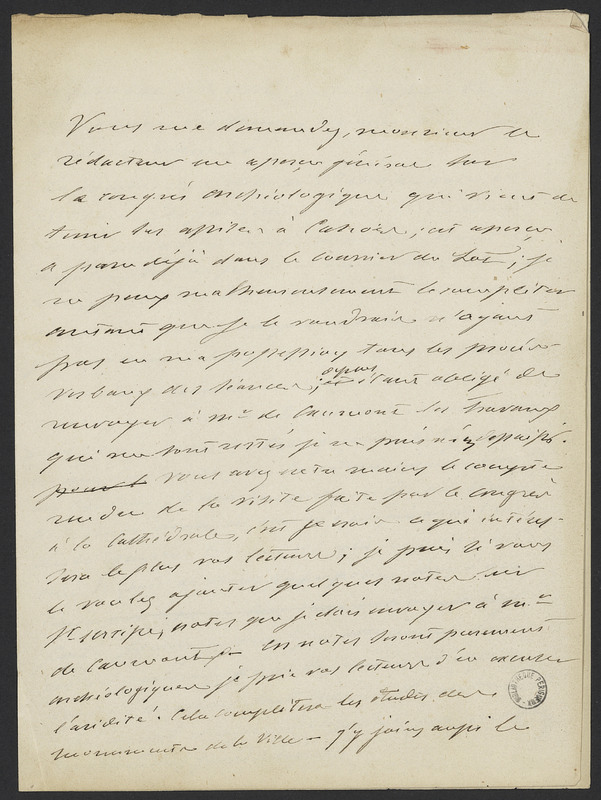 Vous me demandez, monsieur le
rédacteur un aperçu général sur
le congrès archéologique qui vient de
tenir ses assises à Cahors; cet aperçu
a paru déjà dans le courrier du Lot; je
ne peux malheureusement le compléter
autant que je le voudrais n'ayant
pas en ma possession tous les procès
verbaux des séances; étant obligé de
renvoyer à Mr de Caumont les travaux
qui me sont restés je ne puis
pour le vous avez entre mains le compte
rendu de la visite faite par le congrès
à la Cathédrale, c'est je crois ce qui intéres-
sera le plus vos lecteurs; je puis si vous
le voulez ajouter quelques notes sur
notes que je dois envoyer à Mr
de Caumont ces notes sont purement
archéologiques je prie vos lecteurs d'en excuser
l'aridité. Cela complètera les études des
monuments de la Ville - j'y joins aussi le
BIBLIOTHÈQUE